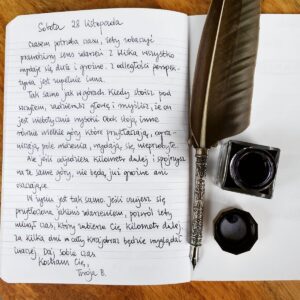 Sobota 28 listopada
Czasem potrzeba czasu, żeby zobaczyć
prawdziwy sens zdarzeń. Z bliska wszystko
wydaje się duże i groźne. Z odległości perspek-
tywa jest zupełnie inna.
Tak samo jak w górach. Kiedy stoisz pod
szczytem, zadzierasz głowę i myślisz, że on
jest niebotycznie wysoki. Obok stoją inne
równie wielkie góry, które przytłaczają, ogra-
niczają pole widzenia, wydają się, nieprzebyte.
Ale jeśli odjedziesz kilometr dalej i spojrzysz
na te same góry, nie będą już groźne ani
otaczające.
W życiu jest tak samo. Jeśli czujesz się
przytłoczona jakimś zdarzeniem, pozwól żeby
minął czas, który zabierze Cię kilometr dalej.
Za kilka dni cały krajobraz będzie wyglądał
inaczej. Daj sobie czas.
Kocham Cię,
Twoja B.